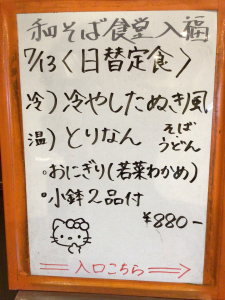 和そば食堂 入福
7/13〈日替定食〉
冷)冷やしたぬき風
温)とりなん そば・うどん
・おにぎり(若菜わかめ)
・小鉢2品付
¥880-
入口こちら